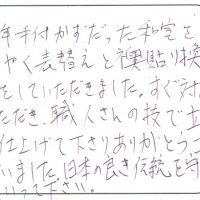 年手付かずだった和室を
やく表替えと襖貼り換
をしていただきました。すぐ対
ただき、職人さんの技で立
仕上げて下さりありがとうご
いました。日本の良き伝統を守
いって下さい。